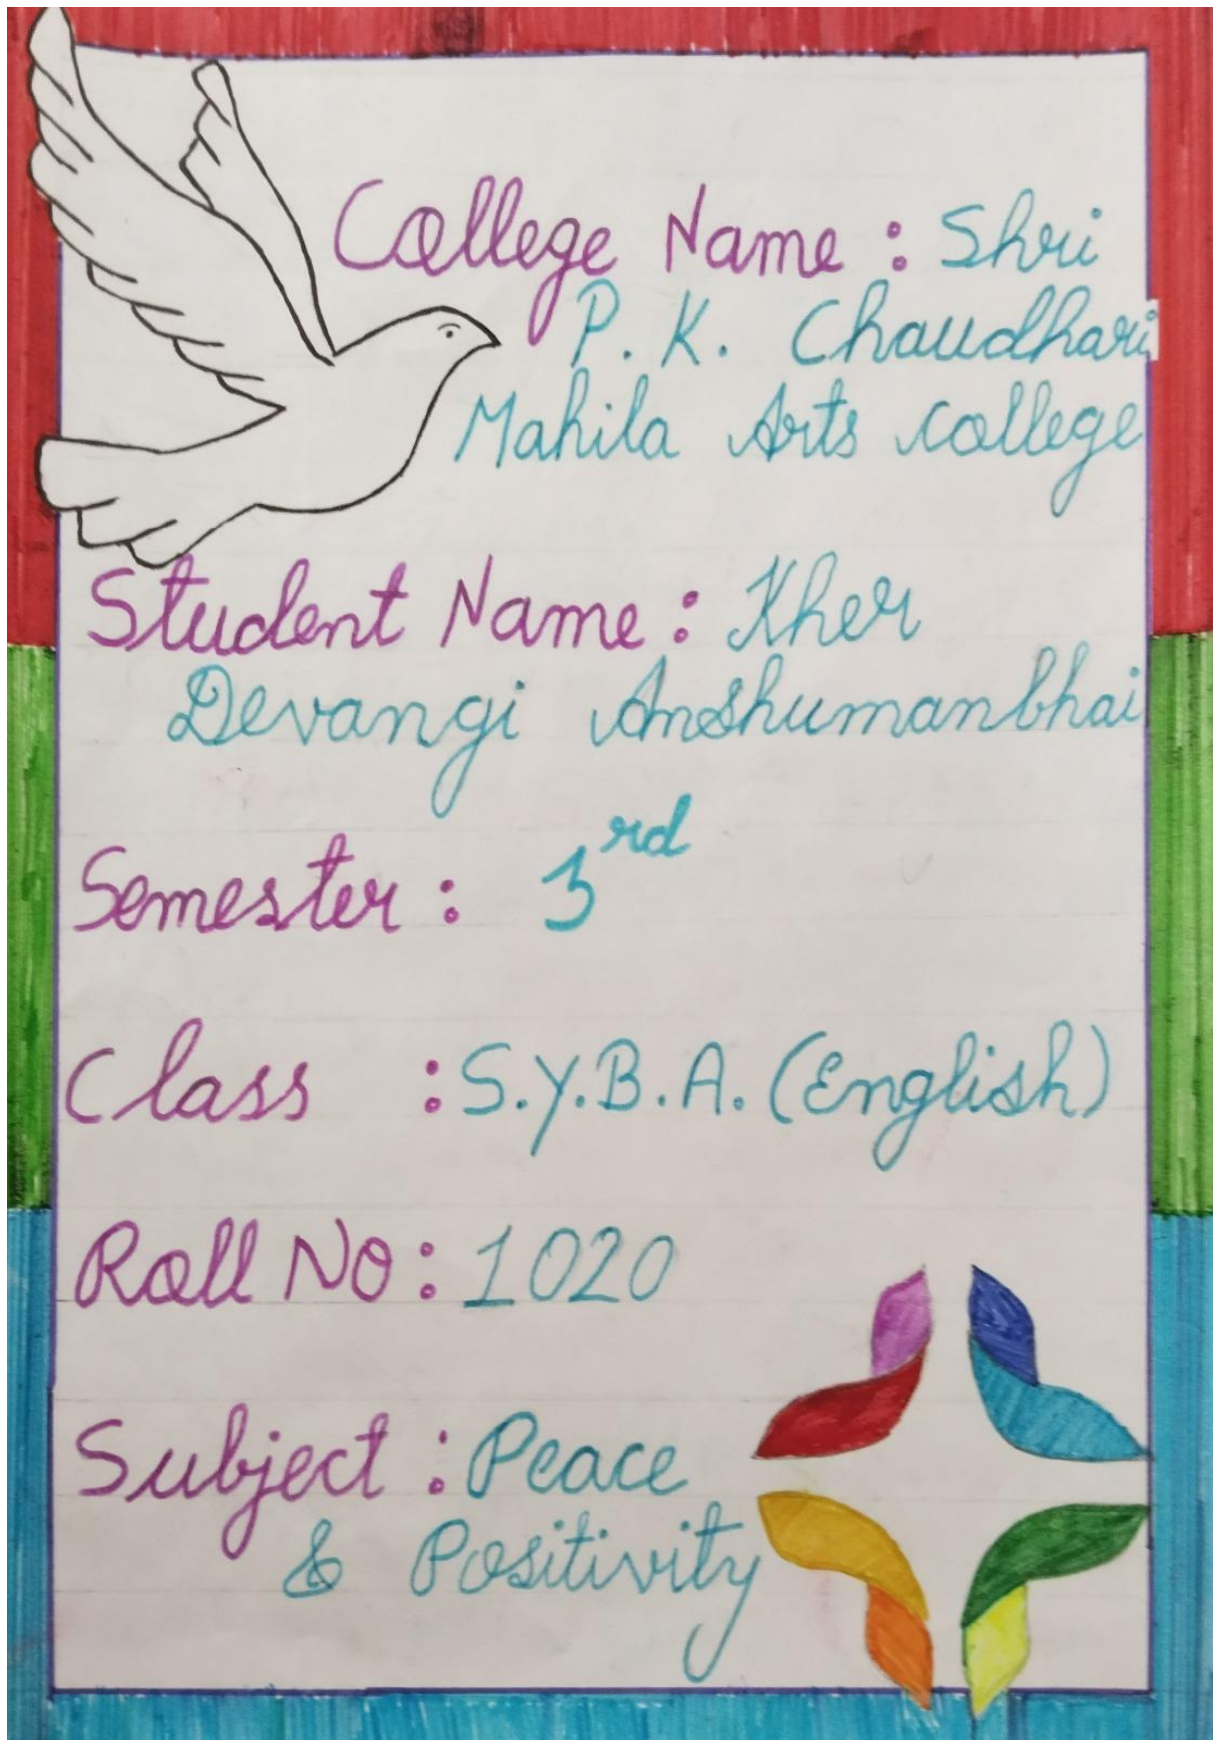 College Name : Shri
P. K. Chaudhari
Mahila Arts College
Student Name : Kher
Devangi Anshumanbhai
Semester : 3rd
Class : S.Y.B.A. (English)
Roll No : 1020
Subject : Peace
& Positivity